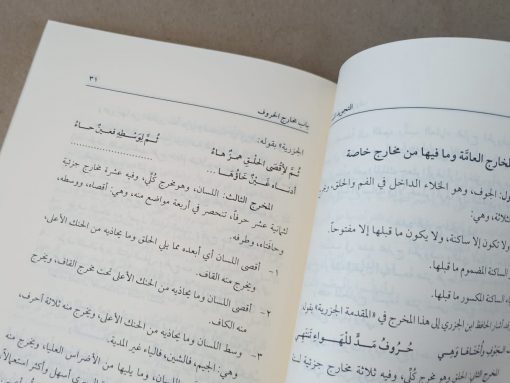 التجويد
المخارج العامّة وما فيها من مخارج خاصة
الجوف، وهو الخلاء الداخل في الفم والحلق،
ثلاثة، وهي:
ولا تكون إلا ساكنة، ولا يكون ما قبلها إلا مفتوحاً.
الساكنة المضموم ما قبلها.
الساكنة المكسور ما قبلها.
أشار الحافظ ابن الجزري إلى هذا المخرج في «المقدمة الجزرية» بقوله
وَأُخْتَاهَا وَهِــي حُرُوفُ مَــدٍّ لِلْهَــوَاءِ تَنْتَهِي
مخرج كُلِّي، وفيه ثلاثة مخارج جزئية
باب مخارج الحروف
٣١
الجزرية» بقوله:
ثُــمَّ لِأَقْصَى الحَلْقِ هَمْــزٌ هَاءُ ثُــمَّ لِوَسْطِهِ فَعَيْــنٌ حَــاءُ
أَدْنَــاهُ غَيْــنٌ خَاؤُهَــا ........................
المخرج الثالث: اللسان، وهو مخرج كُلِّي، وفيه عشرة مخارج جزئية
لثمانية عشر حرفاً، تنحصر في أربعة مواضع منه، وهي: أقصاه، ووسطه،
وحافتاه، وطرفه.
١- أقصى اللسان أي أبعده مما يلي الحلق وما يحاذيه من الحنك الأعلى،
ويخرج منه القاف.
٢- أقصى اللسان وما يحاذيه من الحنك الأعلى تحت مخرج القاف، ويخرج
منه الكاف.
٣- وسط اللسان وما يحاذيه من الحنك الأعلى، ويخرج منه ثلاثة أحرف،
وهي: الجيم، فالشين، فالياء غير المدية.
اللسان، وما يليها من الأضراس العليا،
أسهل وأكثر استعمالاً